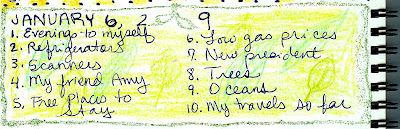 JANUARY 6, 2 9
1. Evenings to myself
2. Refrigerators
3. Scanners
4. My friend Amy
5. Free place to
stay
6. Low gas prices
7. New president
8. Trees
9. Oceans
10. My travels so far